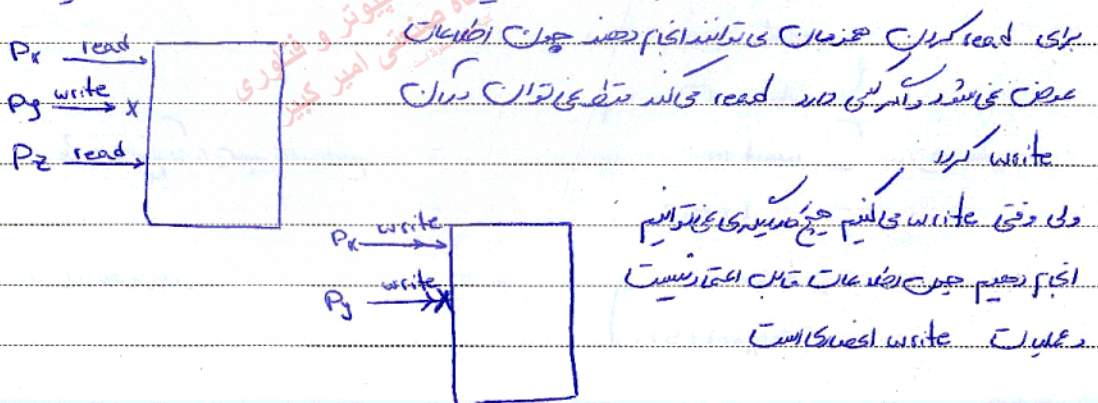 برای read کردن همزمان می توانند انجام دهند چون اطلاعات
عوض نمی شود و اگر کسی دارد read می کند فقط نمی توان در آن
write کرد
Px read
Py write x
Pz read
ولی وقتی write می کنیم هیچ کار دیگری نمی توانیم
انجام دهیم چون اطلاعات قابل اعتماد نیست
و عملیات write انحصاری است
Px write
Py write x
صنعتی امیر کبیر